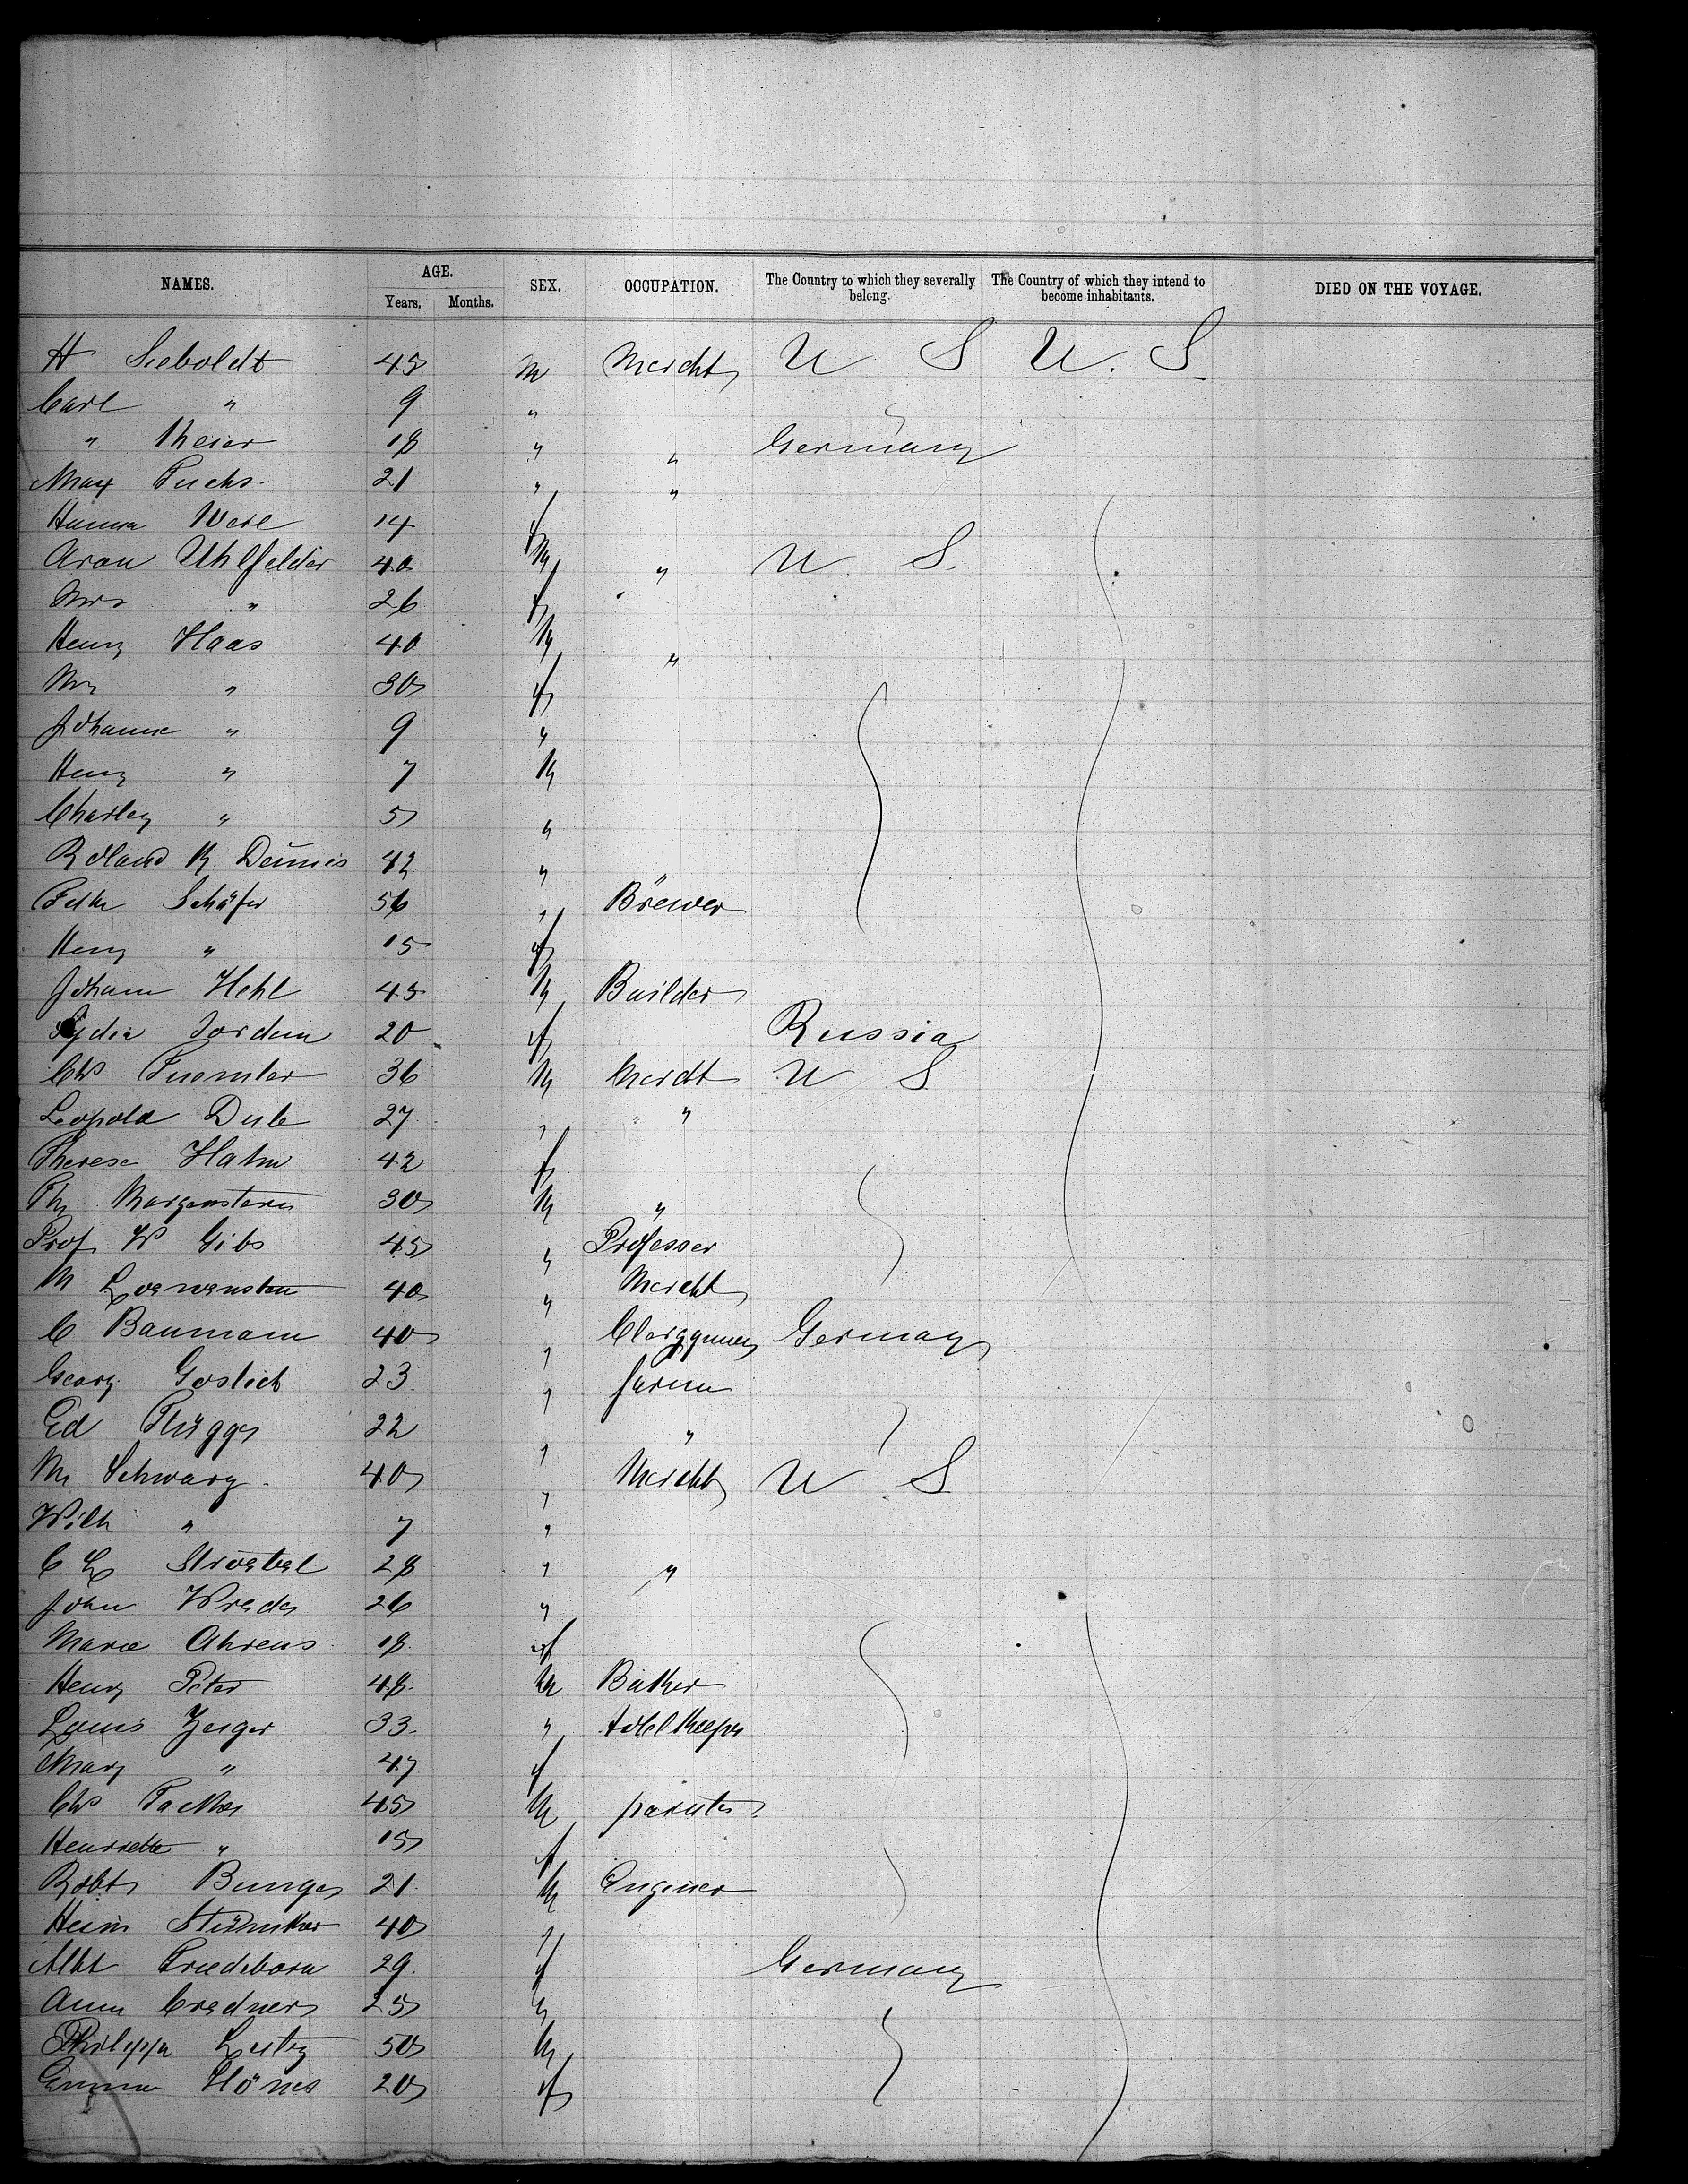 NAMES. AGE. Years. Months. SEX. OCCUPATION. The Country to which they severally belong. The Country of which they intend to become inhabitants. DIED ON THE VOYAGE.
H Seeboldt 45 m Mercht U S U. S.
Carl " 9 "
" Meier 18 " " Germany
Max Fuchs. 21 " "
Hanna Weil 14 f
Aron Uhlfelder 40 M " U S.
Mrs " 26 f
Henry Haas 40 M "
Mrs " 30 f
Johanne " 9 "
Henry " 7 M
Charley " 5 "
Roland Dennis 42 "
Schäfer 56 " Brewer
Henry " 15 f
Johann Hehl 45 M Builder
Lydia Jordan 20 f Russia
Chs 36 M Mercht U S
Leopold 27 " "
Therese Hahn 42 f
Morgenstern 30 M "
Prof W Gibs 45 " Professer
M Loewenstein 40 " Mercht
C Baumann 40 " Clergymen Germany
Georg Goslich 23. " farmer
Ed Flügge 22 " "
M Schwarz. 40 " Mercht U S
Wilh " 7 "
C Stroebel 28 " "
John Wrede 26 "
Marie Ahrens 18. f
Henry Peter 48. M Baker
Louis Zeiger 33. " Hotel Keeper
Mary " 47 f
Chs 45 M painter
Henriette " 15 f
Robt Bunge 21. M Engineer
40 "
Albt Friedeborn 29. f Germany
Anna Credner 25 "
Philipp 50 M
Emma Hönes 20 f